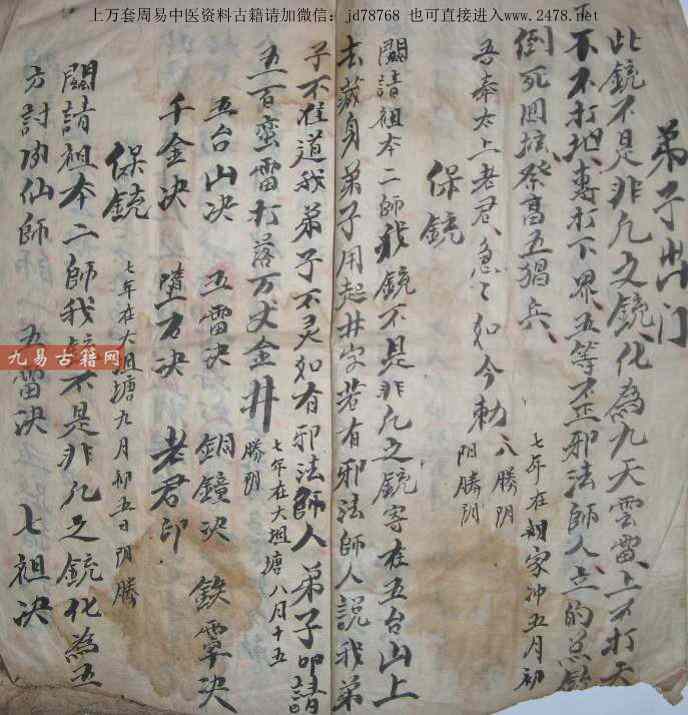 上万套周易中医资料古籍请加微信：jd78768 也可直接进入www.2478.net
弟子出门
此铳不是非凡之铳化為九天雲雷上不打天
下不打地專打下界五等不正邪法師人立的
倒死回壇祭高五猖兵
七年在胡家冲五月初
吾奉太上老君急々如今勅 八勝阴
阳勝阴
保铳
關請祖本二師我铳不是非凡之铳寄在五台山上
去藏身弟子用起井字若有邪法師人説我弟
子不准道我弟子不灵如有邪法師人弟子叩請
五百蛮雷打落万丈金井
七年在大坦塘八月十五
勝阴
五台山决 五雷决 銅鐘决 鉄罩决
千金决 墮方决 老君印
保铳
七年在大坦塘九月初五日阴勝
關請祖本二師我铳不是非凡之铳化為五
方討仙師 五雷决 七祖决
九易古籍网